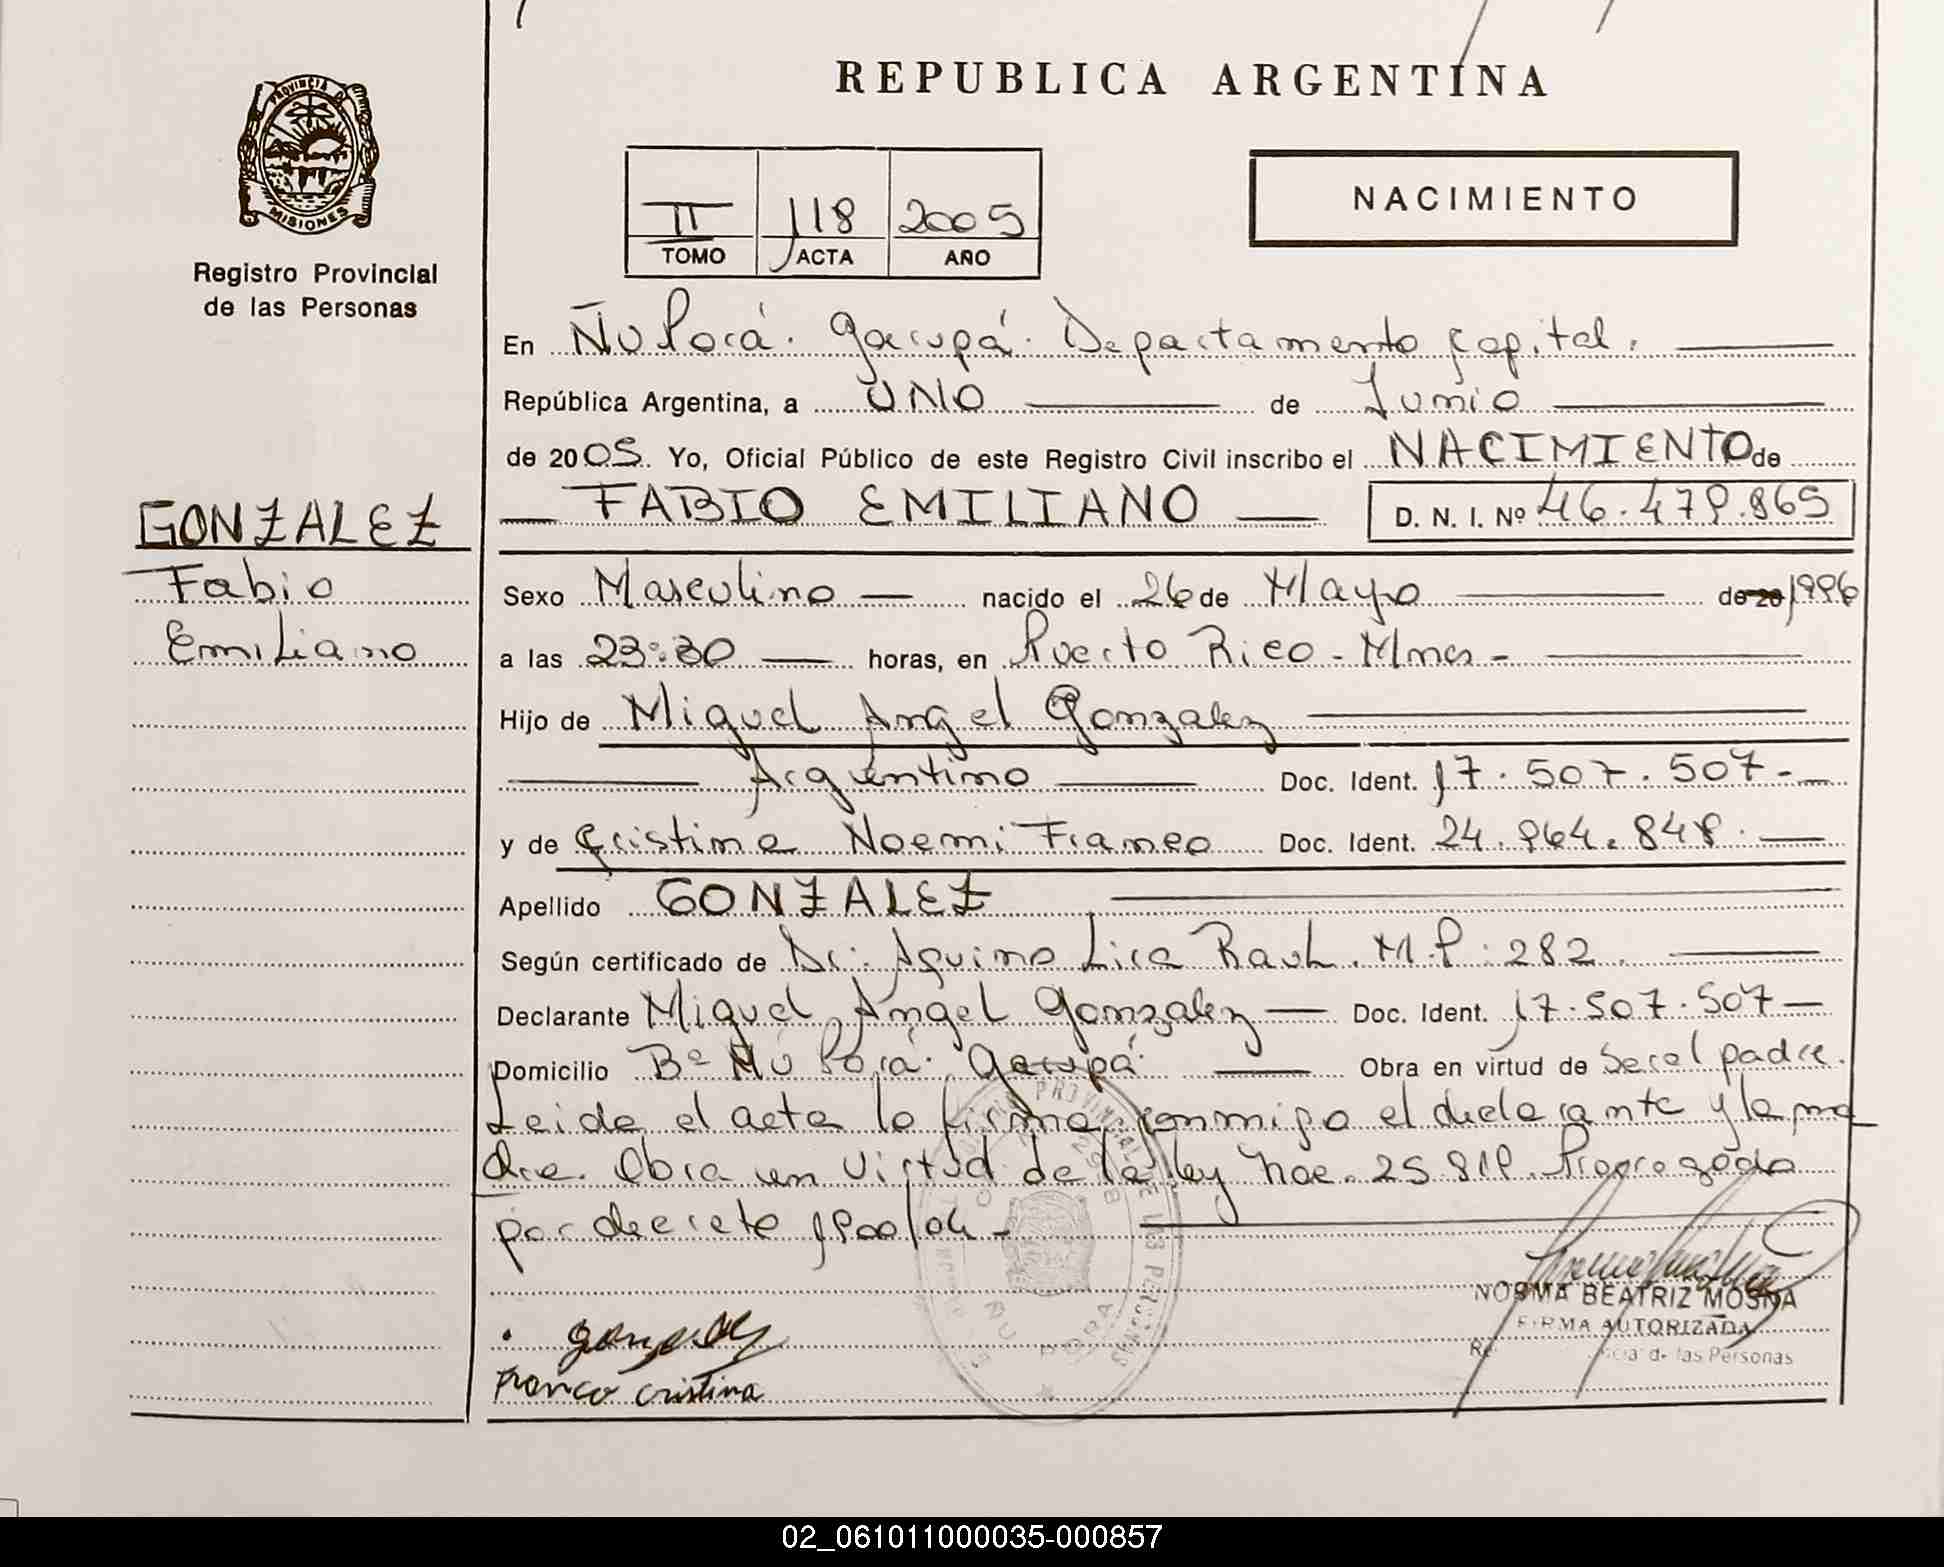 REPUBLICA ARGENTINA
PROVINCIA D
MISIONES
Registro Provincial
de las Personas
NACIMIENTO
II 118 2005
TOMO ACTA AÑO
En Ñu Porá. Garupá. Departamento Capital.
República Argentina, a UNO de Junio
de 2005. Yo, Oficial Público de este Registro Civil inscribo el NACIMIENTO de
FABIO EMILIANO D. N. I. Nº 46.479.865
GONZALEZ
Fabio
Emiliano
Sexo Masculino nacido el 26 de Mayo de 20 1996
a las 23:30 horas, en Puerto Rico - Mnes -
Hijo de Miguel Angel Gonzalez
Argentino Doc. Ident. 17.507.507.-
y de Cristina Noemi Franco Doc. Ident. 24.964.848.
Apellido GONZALEZ
Según certificado de Dr: Aquino Lira Raul. M.P: 282.
Declarante Miguel Angel Gonzalez Doc. Ident. 17.507.507
Domicilio Bº Ñu Porá. Garupá. Obra en virtud de ser el padre.
Leida el acta la firma conmigo el declarante y la ma
dre. Obra en virtud de la ley nac. 25.819. Prorrogada
por decreto 1900/04 -
NORMA BEATRIZ MOSNA
FIRMA AUTORIZADA
de las Personas
Gonzalez
Franco Cristina
02_061011000035-000857